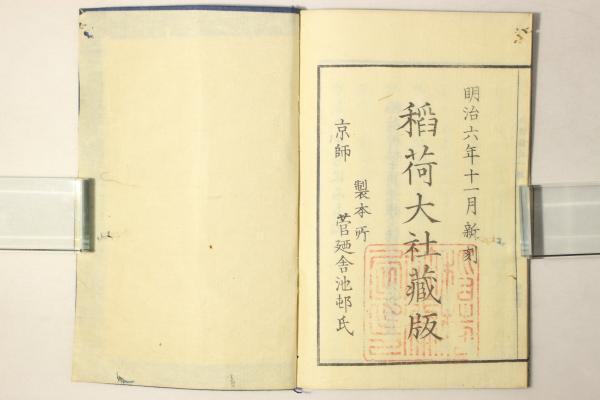 明治六年十一月新刻
稻荷大社藏版
京師
製本所
菅廼舎池邨氏